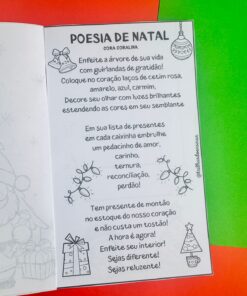 POESIA DE NATAL
CORA CORALINA
Enfeite a árvore de sua vida
com guirlandas de gratidão!
Coloque no coração laços de cetim rosa,
amarelo, azul, carmim,
Decore seu olhar com luzes brilhantes
estendendo as cores em seu semblante
Em sua lista de presentes
em cada caixinha embrulhe
um pedacinho de amor,
carinho,
ternura,
reconciliação,
perdão!
Tem presente de montão
no estoque do nosso coração
e não custa um tostão!
A hora é agora!
Enfeite seu interior!
Sejas diferente!
Sejas reluzente!